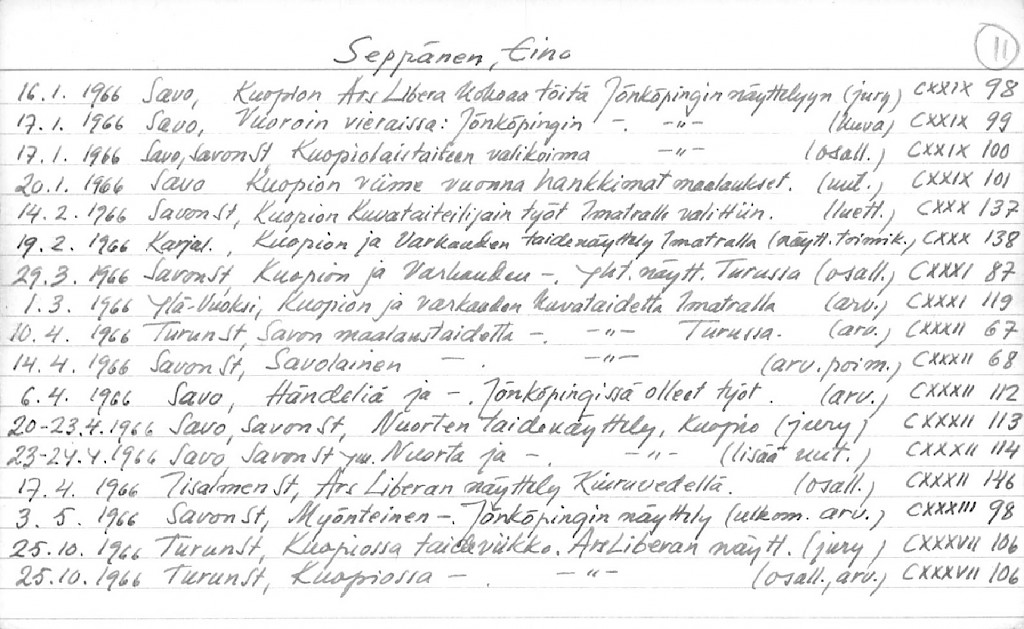 Seppänen, Eino 11
16.1. 1966 Savo, Kuopion Ars Libera kokoaa töitä Jönköpingin näyttelyyn (jury) CXXIX 98
17.1. 1966 Savo, Vuoroin vieraissa: Jönköpingin -. -"- (kuva) CXXIX 99
17.1. 1966 Savo, Savon St, Kuopiolaistaiteen valikoima -"- (osall.) CXXIX 100
20.1. 1966 Savo Kuopion viime vuonna hankkimat maalaukset. (uut.) CXXIX 101
14.2. 1966 Savon St, Kuopion Kuvataiteilijain työt Imatralle valittiin. (luett.) CXXX 137
19.2. 1966 Karjal., Kuopion ja Varkauden taidenäyttely Imatralla (näytt.toimik.) CXXX 138
29.3. 1966 Savon St, Kuopion ja Varkauden -. yht. näytt. Turussa (osall.) CXXXI 87
1.3. 1966 Ylä-Vuoksi, Kuopion ja Varkauden kuvataidetta Imatralla (arv.) CXXXI 119
10.4. 1966 Turun St, Savon maalaustaidetta -. -"- Turussa. (arv.) CXXXII 67
14.4. 1966 Savon St, Savolainen -. -"- (arv.poim.) CXXXII 68
6.4. 1966 Savo, Händeliä ja -. Jönköpingissä olleet työt. (arv.) CXXXII 112
20-23.4.1966 Savo, Savon St, Nuorten taidenäyttely, Kuopio (jury) CXXXII 113
23-24.4.1966 Savo, Savon St ym. Nuorta ja -. -"- (lisää uut.) CXXXII 114
17.4. 1966 Iisalmen St, Ars Liberan näyttely Kiuruvedellä. (osall.) CXXXII 146
3.5. 1966 Savon St, Myönteinen -. Jönköpingin näyttely (ulkom. arv.) CXXXIII 98
25.10. 1966 Turun St, Kuopiossa taideviikko. Ars Liberan näytt. (jury) CXXXVII 106
25.10. 1966 Turun St, Kuopiossa -. -"- (osall., arv.) CXXXVII 106